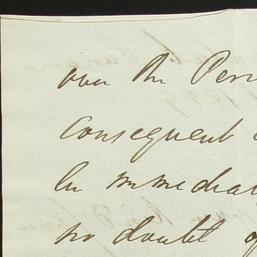 over the Pen
consequent
be immediat
no doubt of